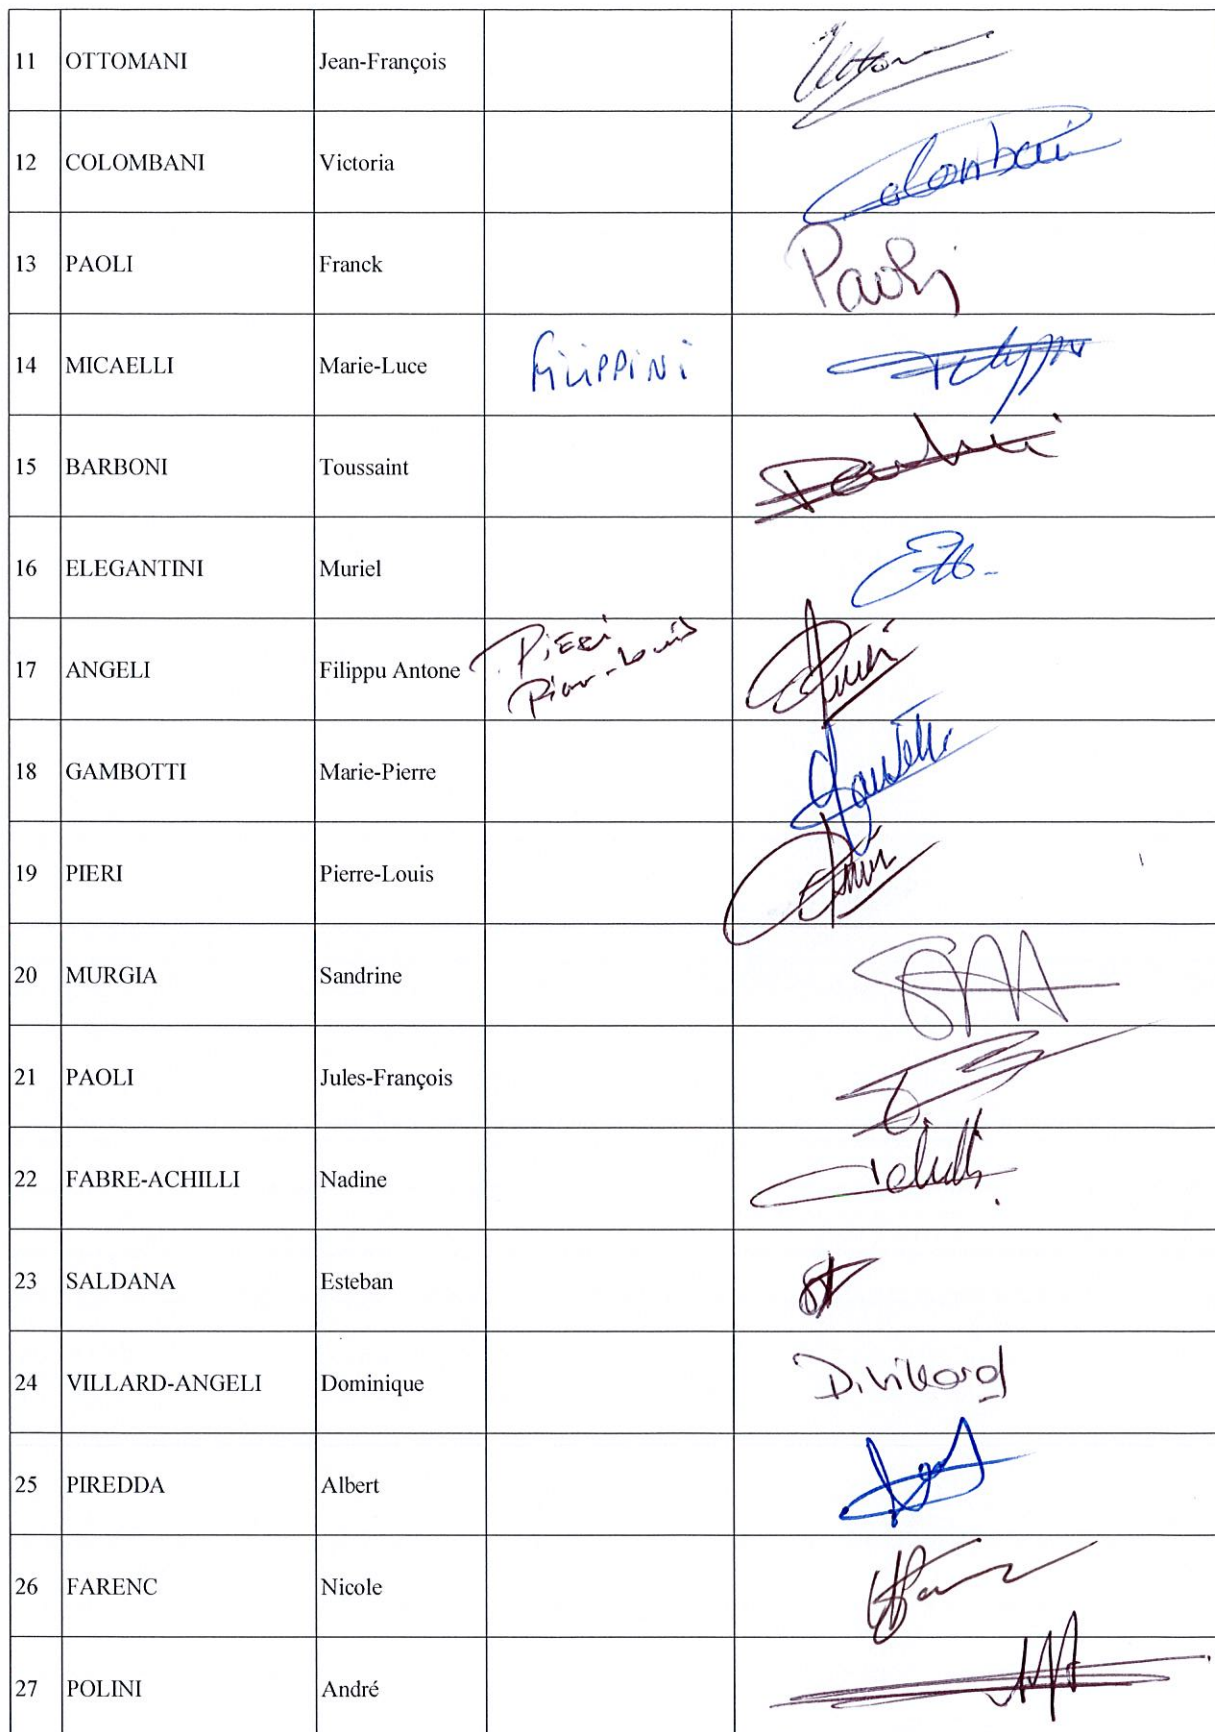 11 OTTOMANI Jean-François
12 COLOMBANI Victoria Colombani
13 PAOLI Franck Paoli
14 MICAELLI Marie-Luce FiliPPiNi
15 BARBONI Toussaint
16 ELEGANTINI Muriel
17 ANGELI Filippu Antone PiERi
Pierre-Louis
18 GAMBOTTI Marie-Pierre
19 PIERI Pierre-Louis
20 MURGIA Sandrine
21 PAOLI Jules-François
22 FABRE-ACHILLI Nadine
23 SALDANA Esteban
24 VILLARD-ANGELI Dominique D.Villard
25 PIREDDA Albert
26 FARENC Nicole
27 POLINI André